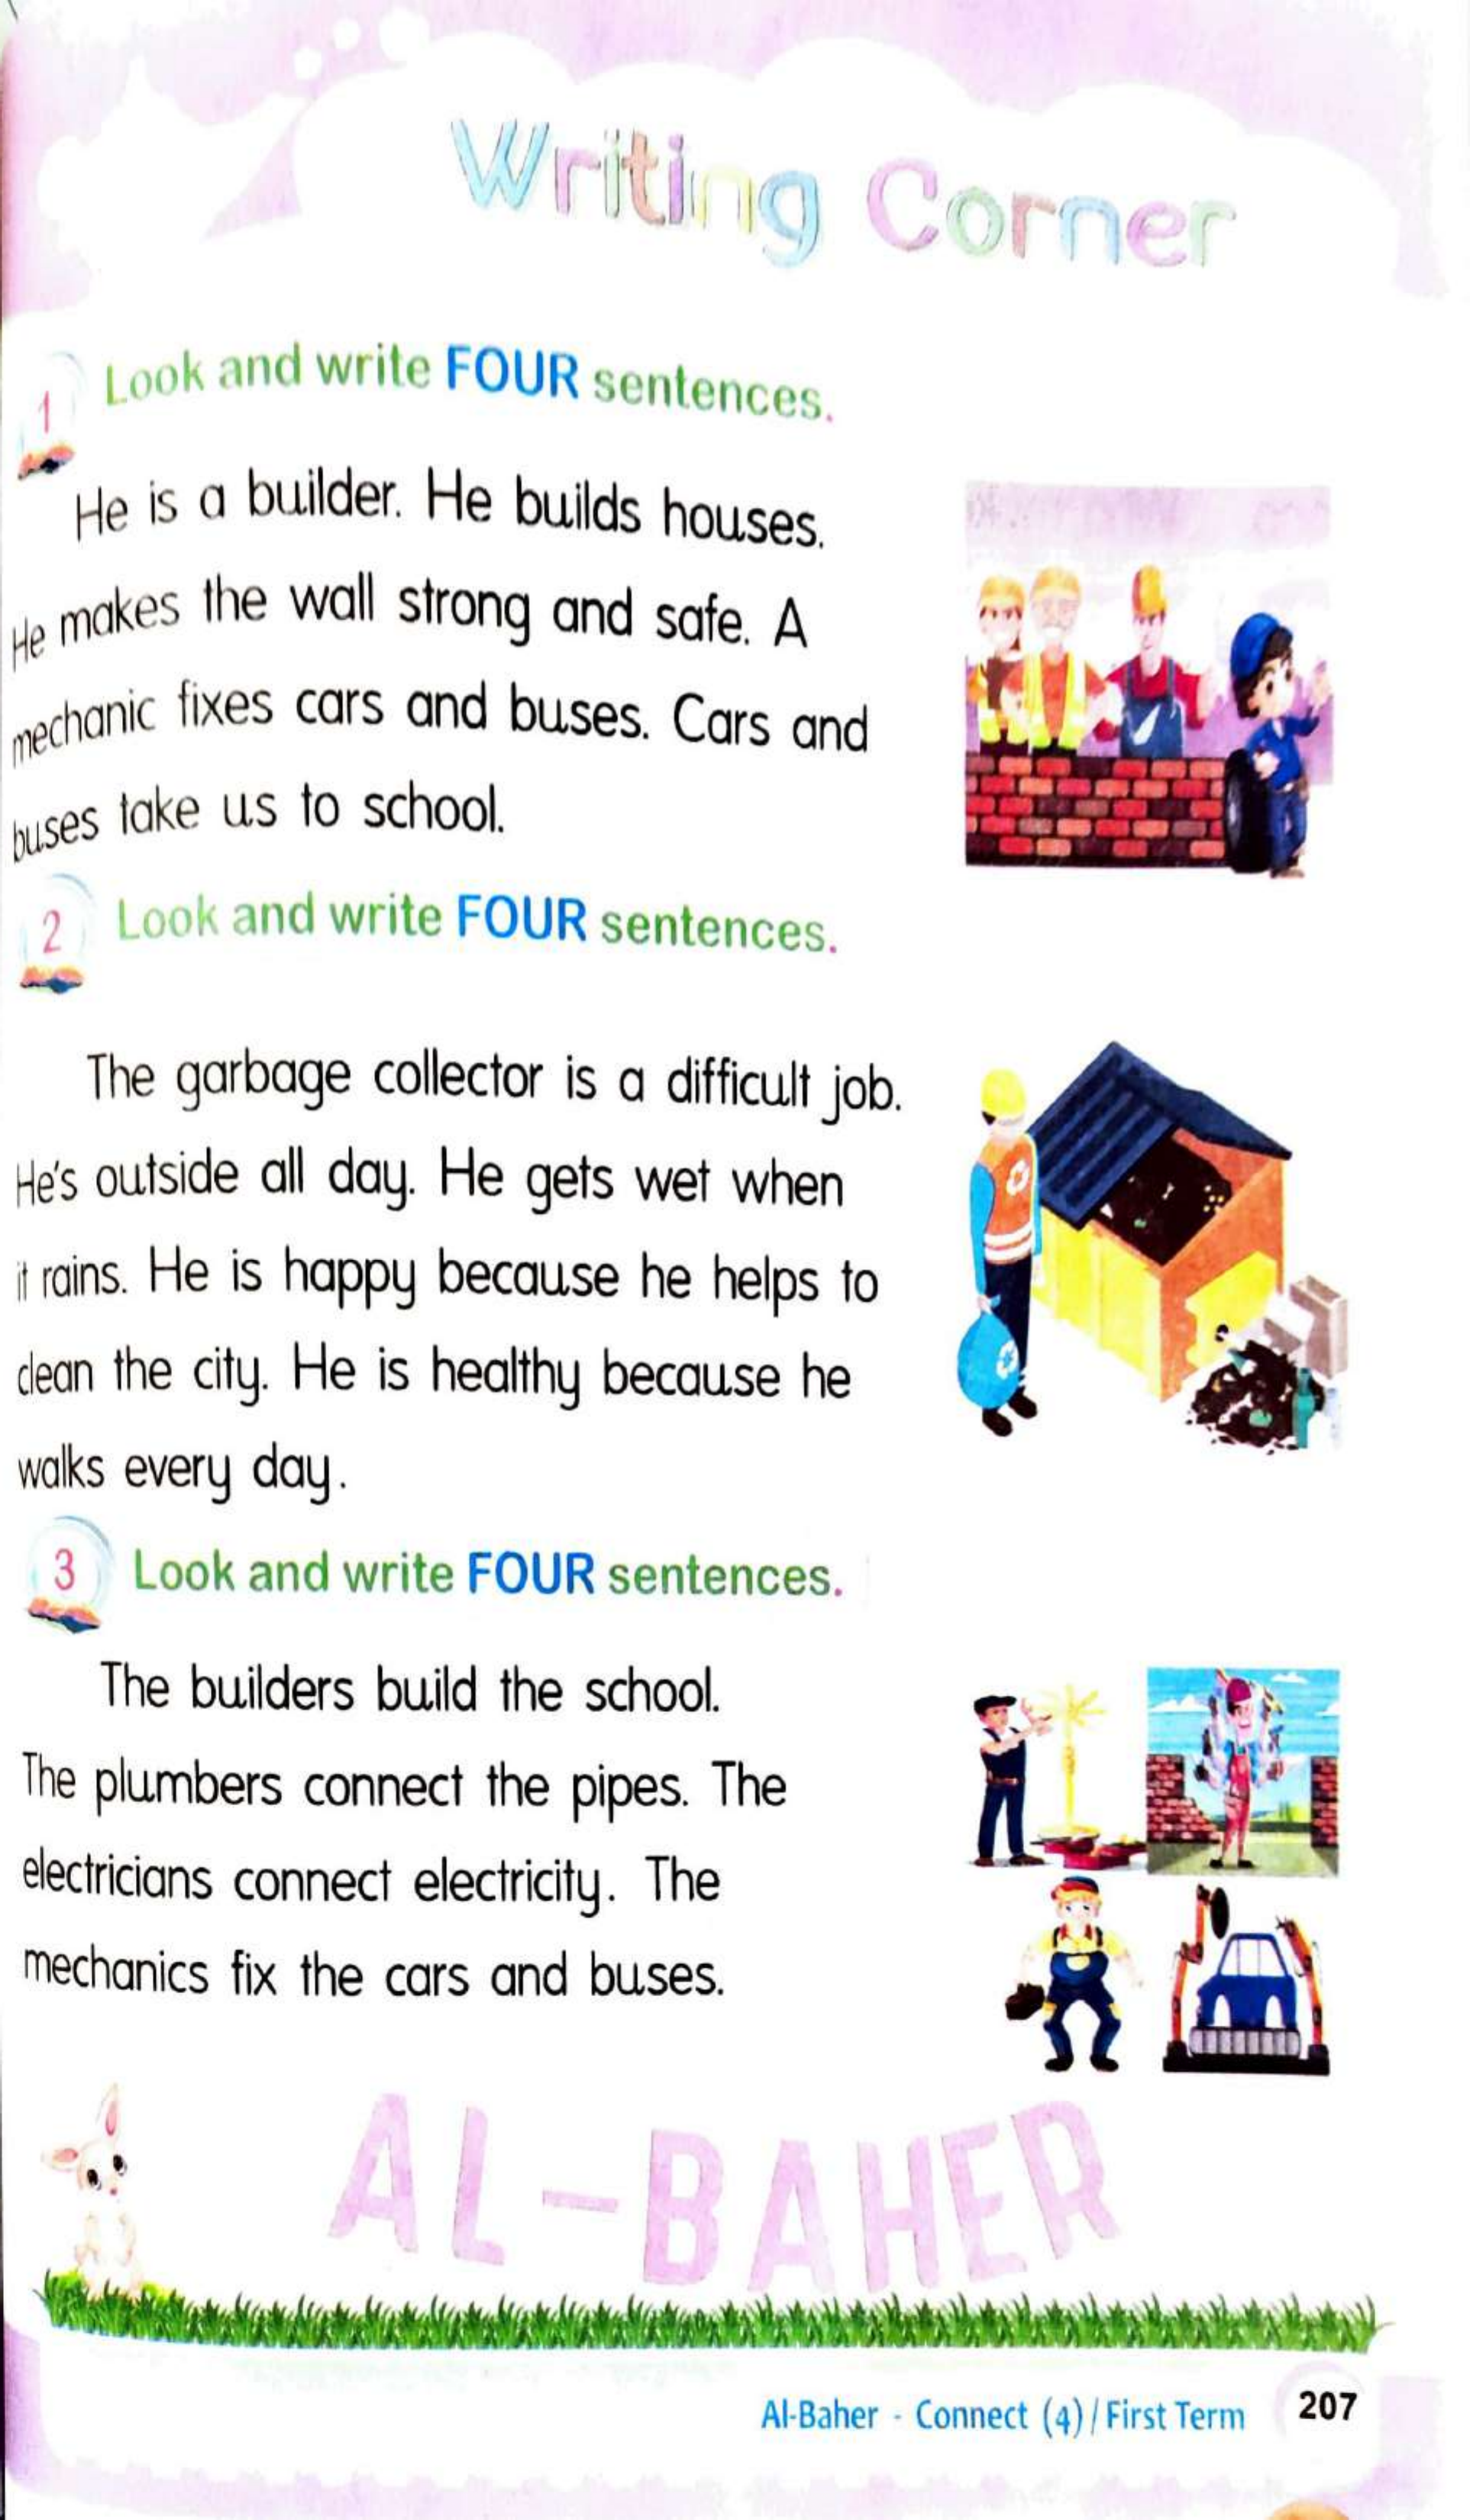 Writing Corner
1 Look and write FOUR sentences.
He is a builder. He builds houses.
He makes the wall strong and safe. A
mechanic fixes cars and buses. Cars and
buses take us to school.
2 Look and write FOUR sentences.
The garbage collector is a difficult job.
He's outside all day. He gets wet when
it rains. He is happy because he helps to
clean the city. He is healthy because he
walks every day.
3 Look and write FOUR sentences.
The builders build the school.
The plumbers connect the pipes. The
electricians connect electricity. The
mechanics fix the cars and buses.
AL-BAHER
Al-Baher - Connect (4) / First Term 207